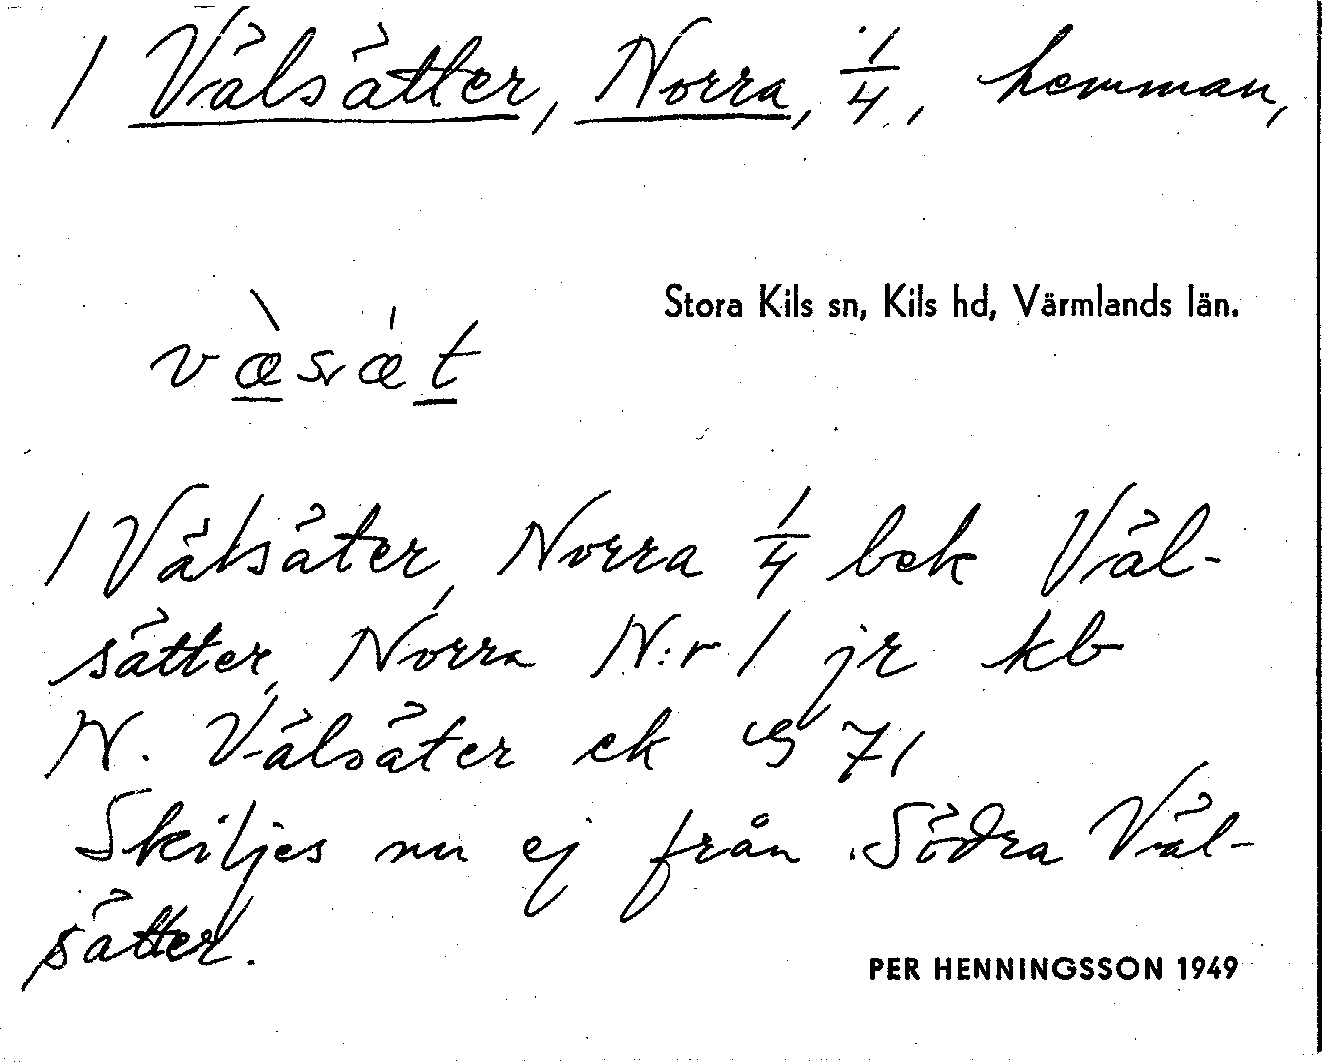 1 Välsätter, Norra, 1/4, hemman,
Stora Kils sn, Kils hd, Värmlands län.
væ̀sæ̍t
1 Välsäter, Norra 1/4 bek Väl-
sätter, Norra N:r 1 jr kb
N. Välsäter ek 71
Skiljes nu ej från Södra Väl-
sätter.
PER HENNINGSSON 1949